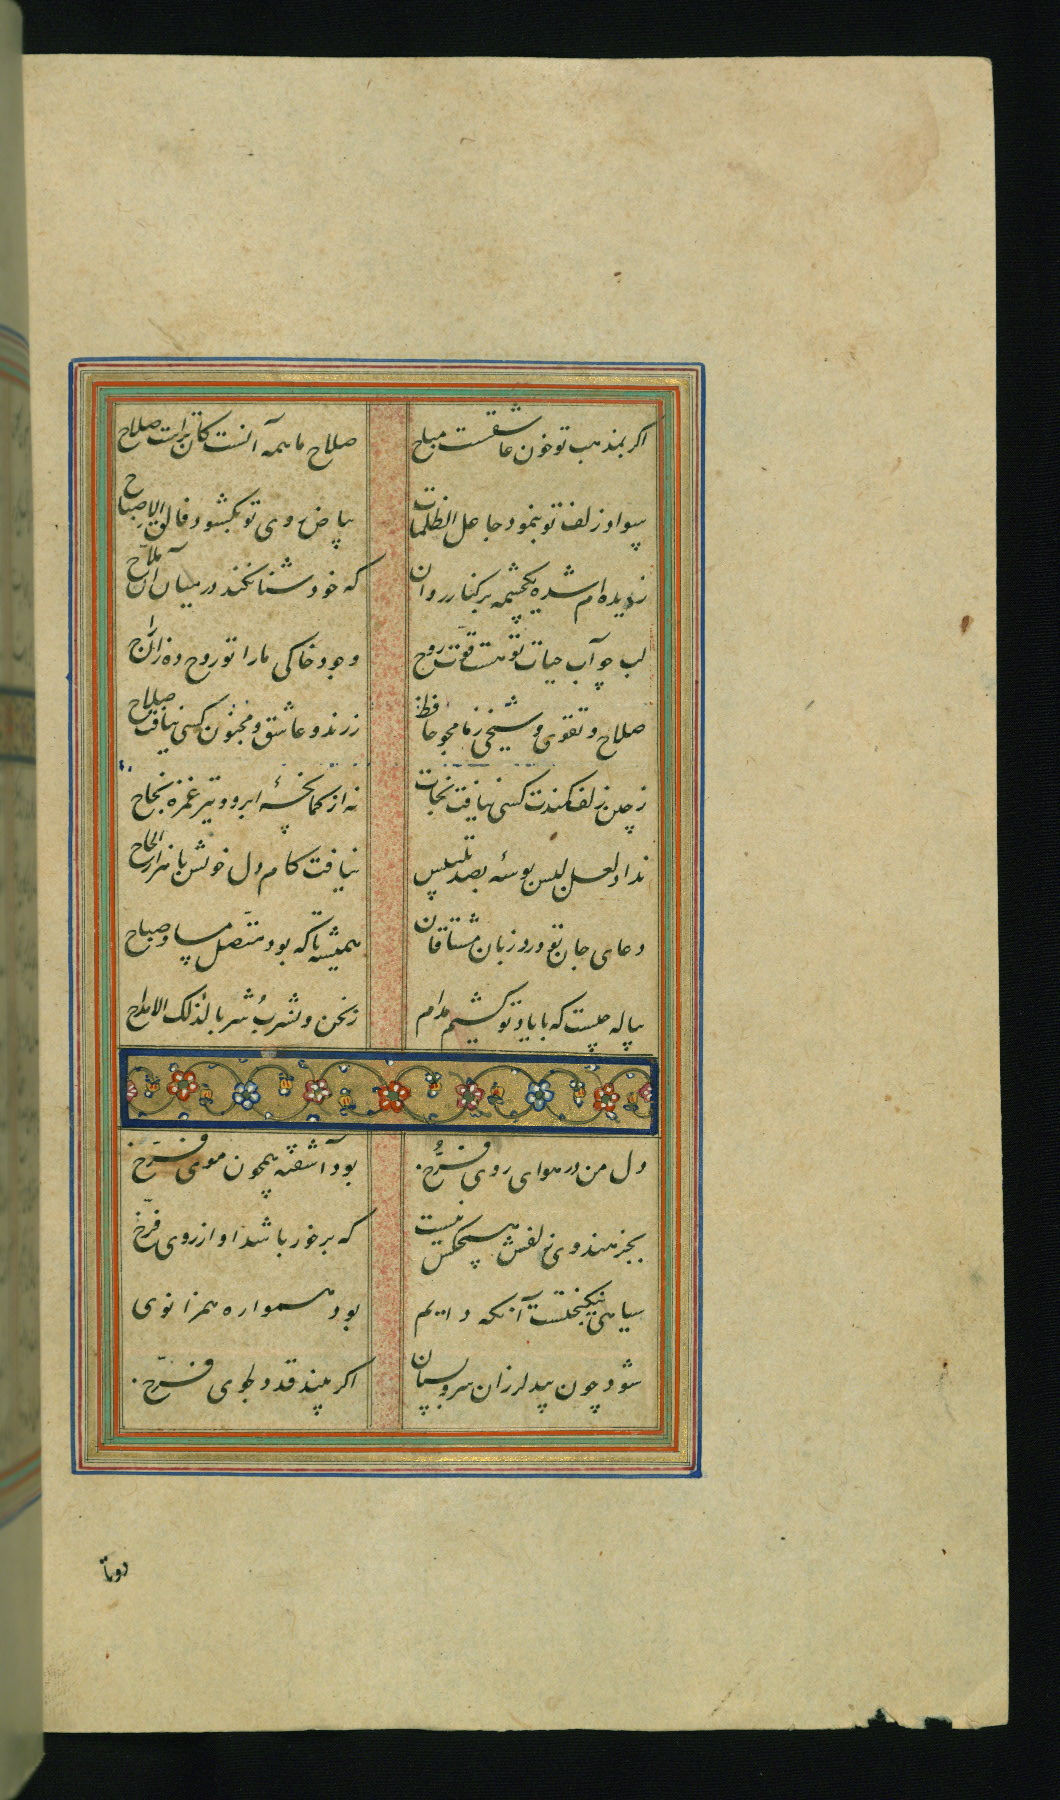 اکر بمذهب تو خون عاشقست مباح صلاح ما همه آنست کان تراست صلاح
سواد زلف تو بنمود جاعل الظلمات بیاض روی تو بکشود فالق الاصباح
ز دیده ام شده یکچشمه بر کنار روان که خود شنا نکند در میان آن ملاح
لب چو آب حیات تو هست قوّت روح وجود خاکی ما را تو روح ده زان راح
صلاح و تقوی و شیخی ز ما مجو حافظ ز رند و عاشق و مجنون کسی نیافت صلاح
ز چین زلف کمندت کسی نیافت نجات نه از کمانچهٔ ابرو و تیر غمزه نجاح
نداد لعل لبش بوسهٔ بصد تلبیس نیافت کام دل خویشن با هزار الحاح
دعای جان تو ورد زبان مشتاقان همیشه تا که بود متّصل مسا و صباح
پیاله چیست که با یاد تو کشیم مدام نحن و نشربُ شربا لذلک الاقداح
دل من در هوای روی فرّخ بود آشفته همچون موی فرّخ
بجز هندوی زلفش هیچکس نیست که برخور باشد او از روی فرّخ
سیاهی نیکبختست آنکه دایم بود همواره همزانوی
شود چون بید لرزان سرو بستان اکر بیند قد دلجوی فرّخ